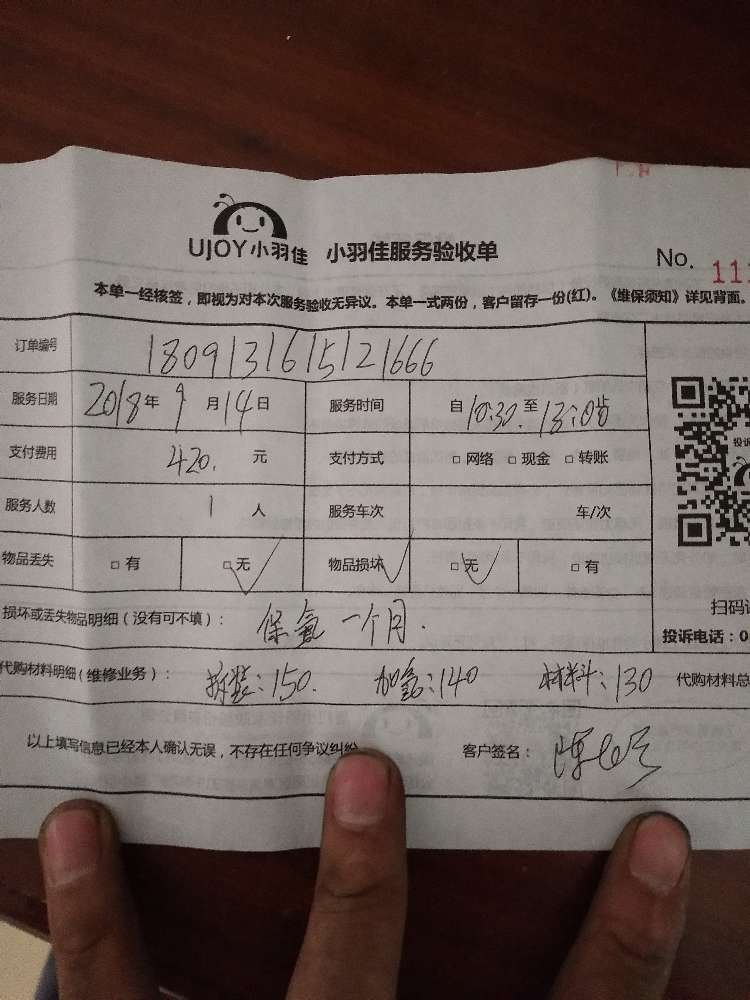 UJOY小羽佳 小羽佳服务验收单 No. 111
本单一经核签，即视为对本次服务验收无异议。本单一式两份，客户留存一份(红)。《维保须知》详见背面。
订单编号 180913161521666
服务日期 2018年9月14日 服务时间 自10:30至13:08
支付费用 420.元 支付方式 □网络 □现金 □转账
服务人数 1人 服务车次 车/次
物品丢失 □有 □无 物品损坏 □无 □有
损坏或丢失物品明细（没有可不填）： 保氟一个月.
代购材料明细（维修业务）： 拆装:150. 加氟:140 材料:130 代购材料总
以上填写信息已经本人确认无误，不存在任何争议纠纷 客户签名：
投诉
扫码
投诉电话：0